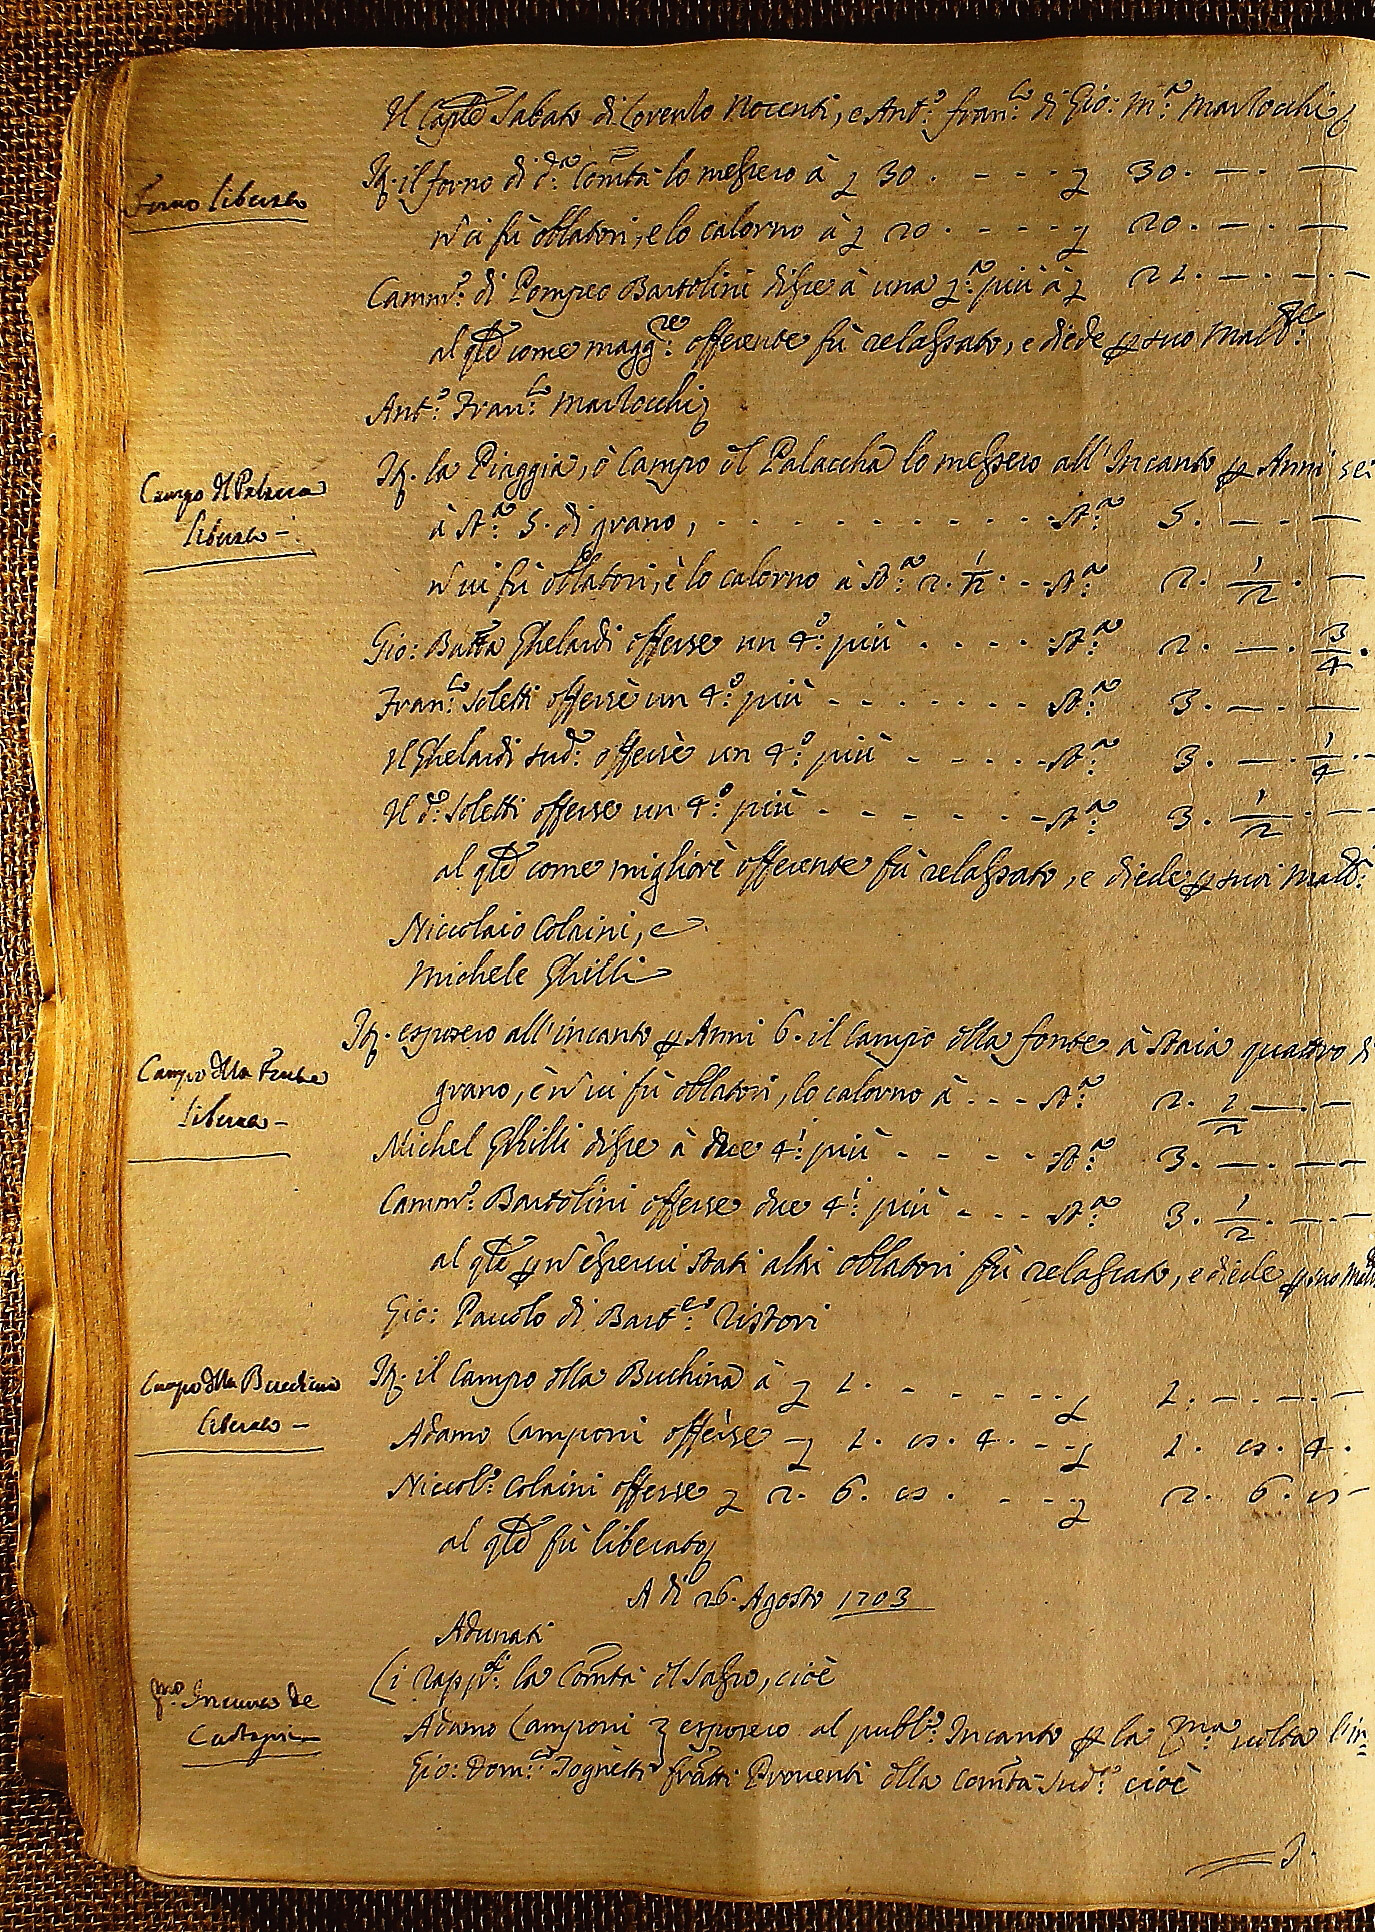 Il Cap.e Sabato di Lorenzo Nocenti, e Ant.o Fran.co di Gio: M.a Marzocchi
Forno liberato
It. il forno di d.a Com.tà lo messero à £ 30. - - - £ 30. — —
n' ci fù oblatori, e lo calorno à £ 20. - - - £ 20. — —
Camm.o di Pompeo Bartolini disse à una £.a più à £ 21. — —
al q.le come magg.re offerente fù relassato, e diede p suo Mall.re
Ant.o Fran.co Marzocchi
Campo d Palacca
liberato -
It. la Piaggia, ò Campo d Palaccha lo messero all'Incanto p Anni sei
à St.a 5. di grano, - - - - - St.a 5. — —
n' ui fù oblatori, è lo calorno à St.a 2. 1/2. - - St.a 2. 1/2. —
Gio: Batta Ghelardi offerse un 4.o più - - - - St.a 2. —. 3/4.
Fran.co Soletti offersè un 4.o più - - - - - St.a 3. — —
Il Ghelardi sud.o offersè un 4.o più - - - - St.a 3. —. 1/4
Il d.o Soletti offerse un 4.o più - - - - - St.a 3. 1/2. —
al q.le come migliore offerente fù relassato, e diede p suoi Mall.
Niccolaio Colaini, e
Michele Ghilli
Campo dlla Fonte
liberato -
It. esposero all'incanto p Anni 6. il Campo dlla fonte à Staia quattro di
grano, è n' ui fù oblatori, lo calorno à - - - St.a 2. 1/2 — —
Michel Ghilli disse à due 4.i più - - - - St.a 3. — —
Camm.o Bartolini offerse due 4.i più - - - St.a 3. 1/2. —
al q.le p n' esserui stati altri oblatori fù relassato, e diede p suo Mall.
Gio: Pauolo di Bart.eo Ristori
Campo dlla Buchina
liberato -
It. il Campo dlla Buchina à £ 1. - - - - £ 1. — —
Adamo Camponi offerse - £ 1. cs. 4. - - £ 1. cs. 4.
Niccol.o Colaini offerse £ 2. 6. cs. - - - £ 2. 6. cs -
al q.le fù liberato
A di 26. Agosto 1703
Adunati
Li rapp.ti la Com.tà d Sasso, cioè
P.mo Incanto de
Adamo Camponi } esposero al pubb.o Incanto p la P.ma uolta l'in=
Gio: Dom.co Tognetti fra.tti Prouenti dlla Com.tà Sud.a cioè
J.